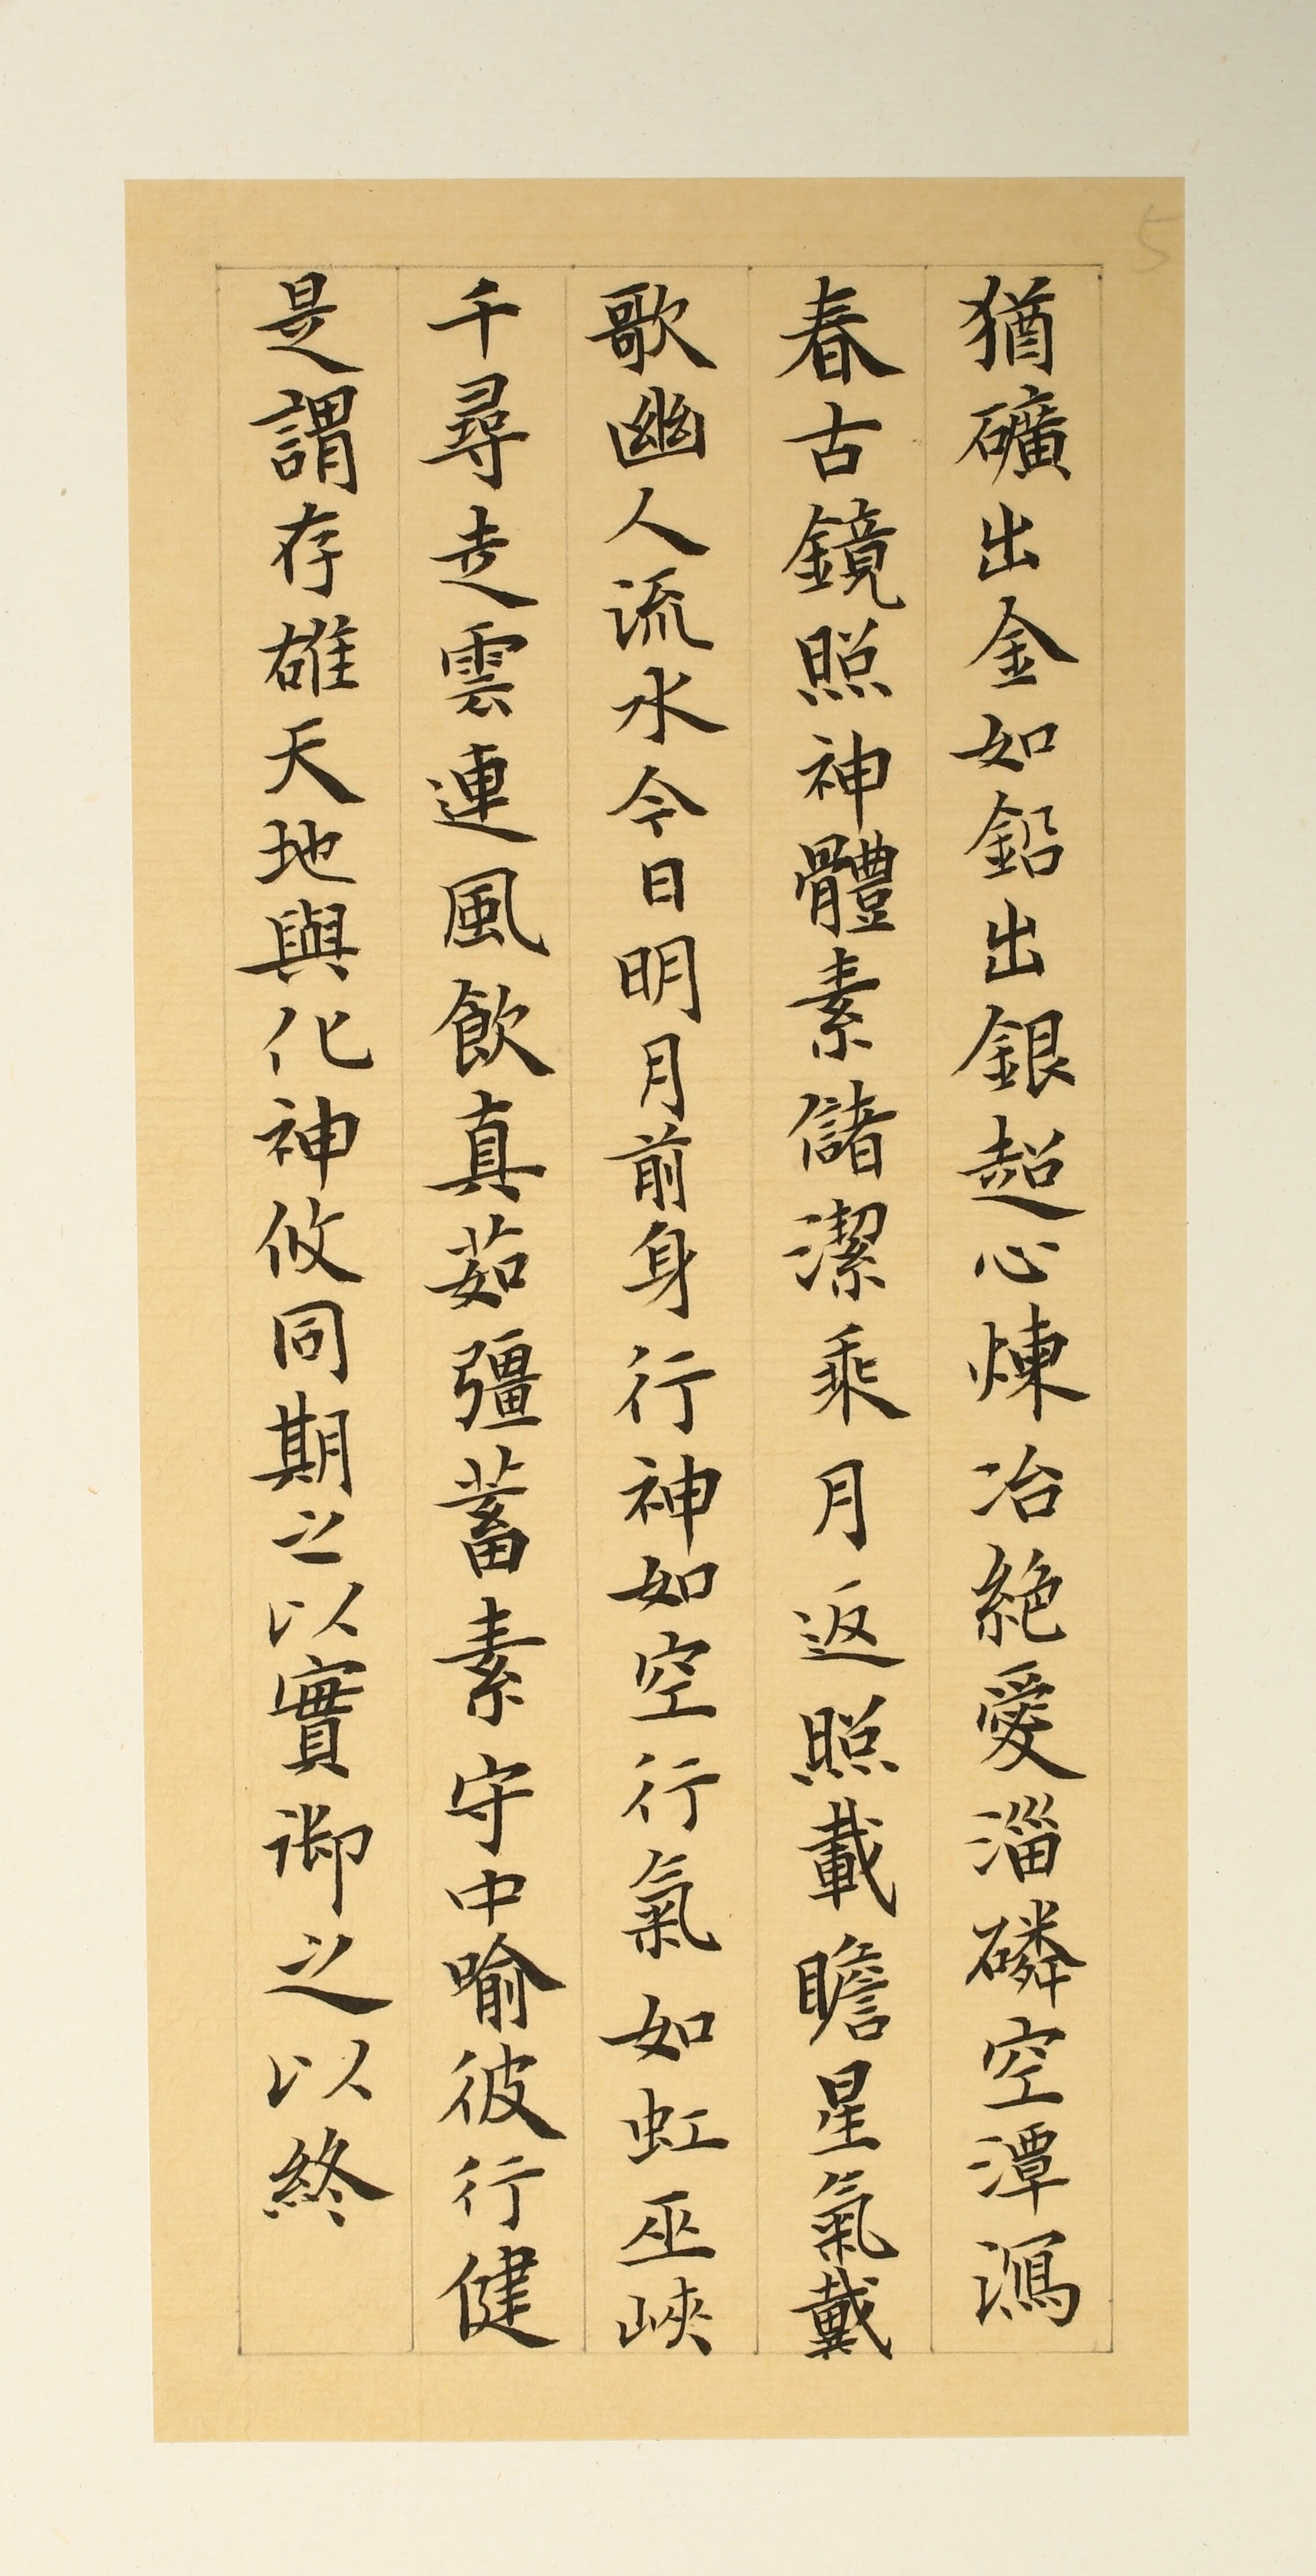 5
猶礦出金如鉛出銀超心煉冶絕愛淄磷空潭瀉
春古鏡照神體素儲潔乘月返照載瞻星氣戴
歌幽人流水今日明月前身行神如空行氣如虹巫峽
千尋走雲連風飲真茹彊蓄素守中喻彼行健
是謂存雄天地與化神攸同期之以實御之以終